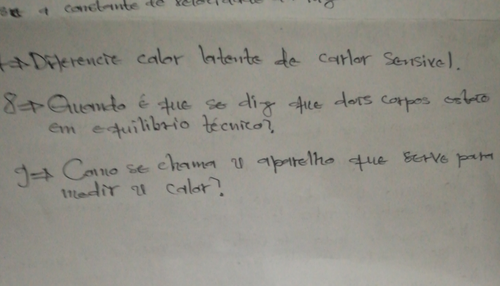 a constante de velocidade
7=> Diferencie calor latente de carlor sensivel.
8=> Quando é que se diz que dois corpos estão
em equilibrio técnico?
9=> Como se chama o aparelho que serve para
medir o calor?